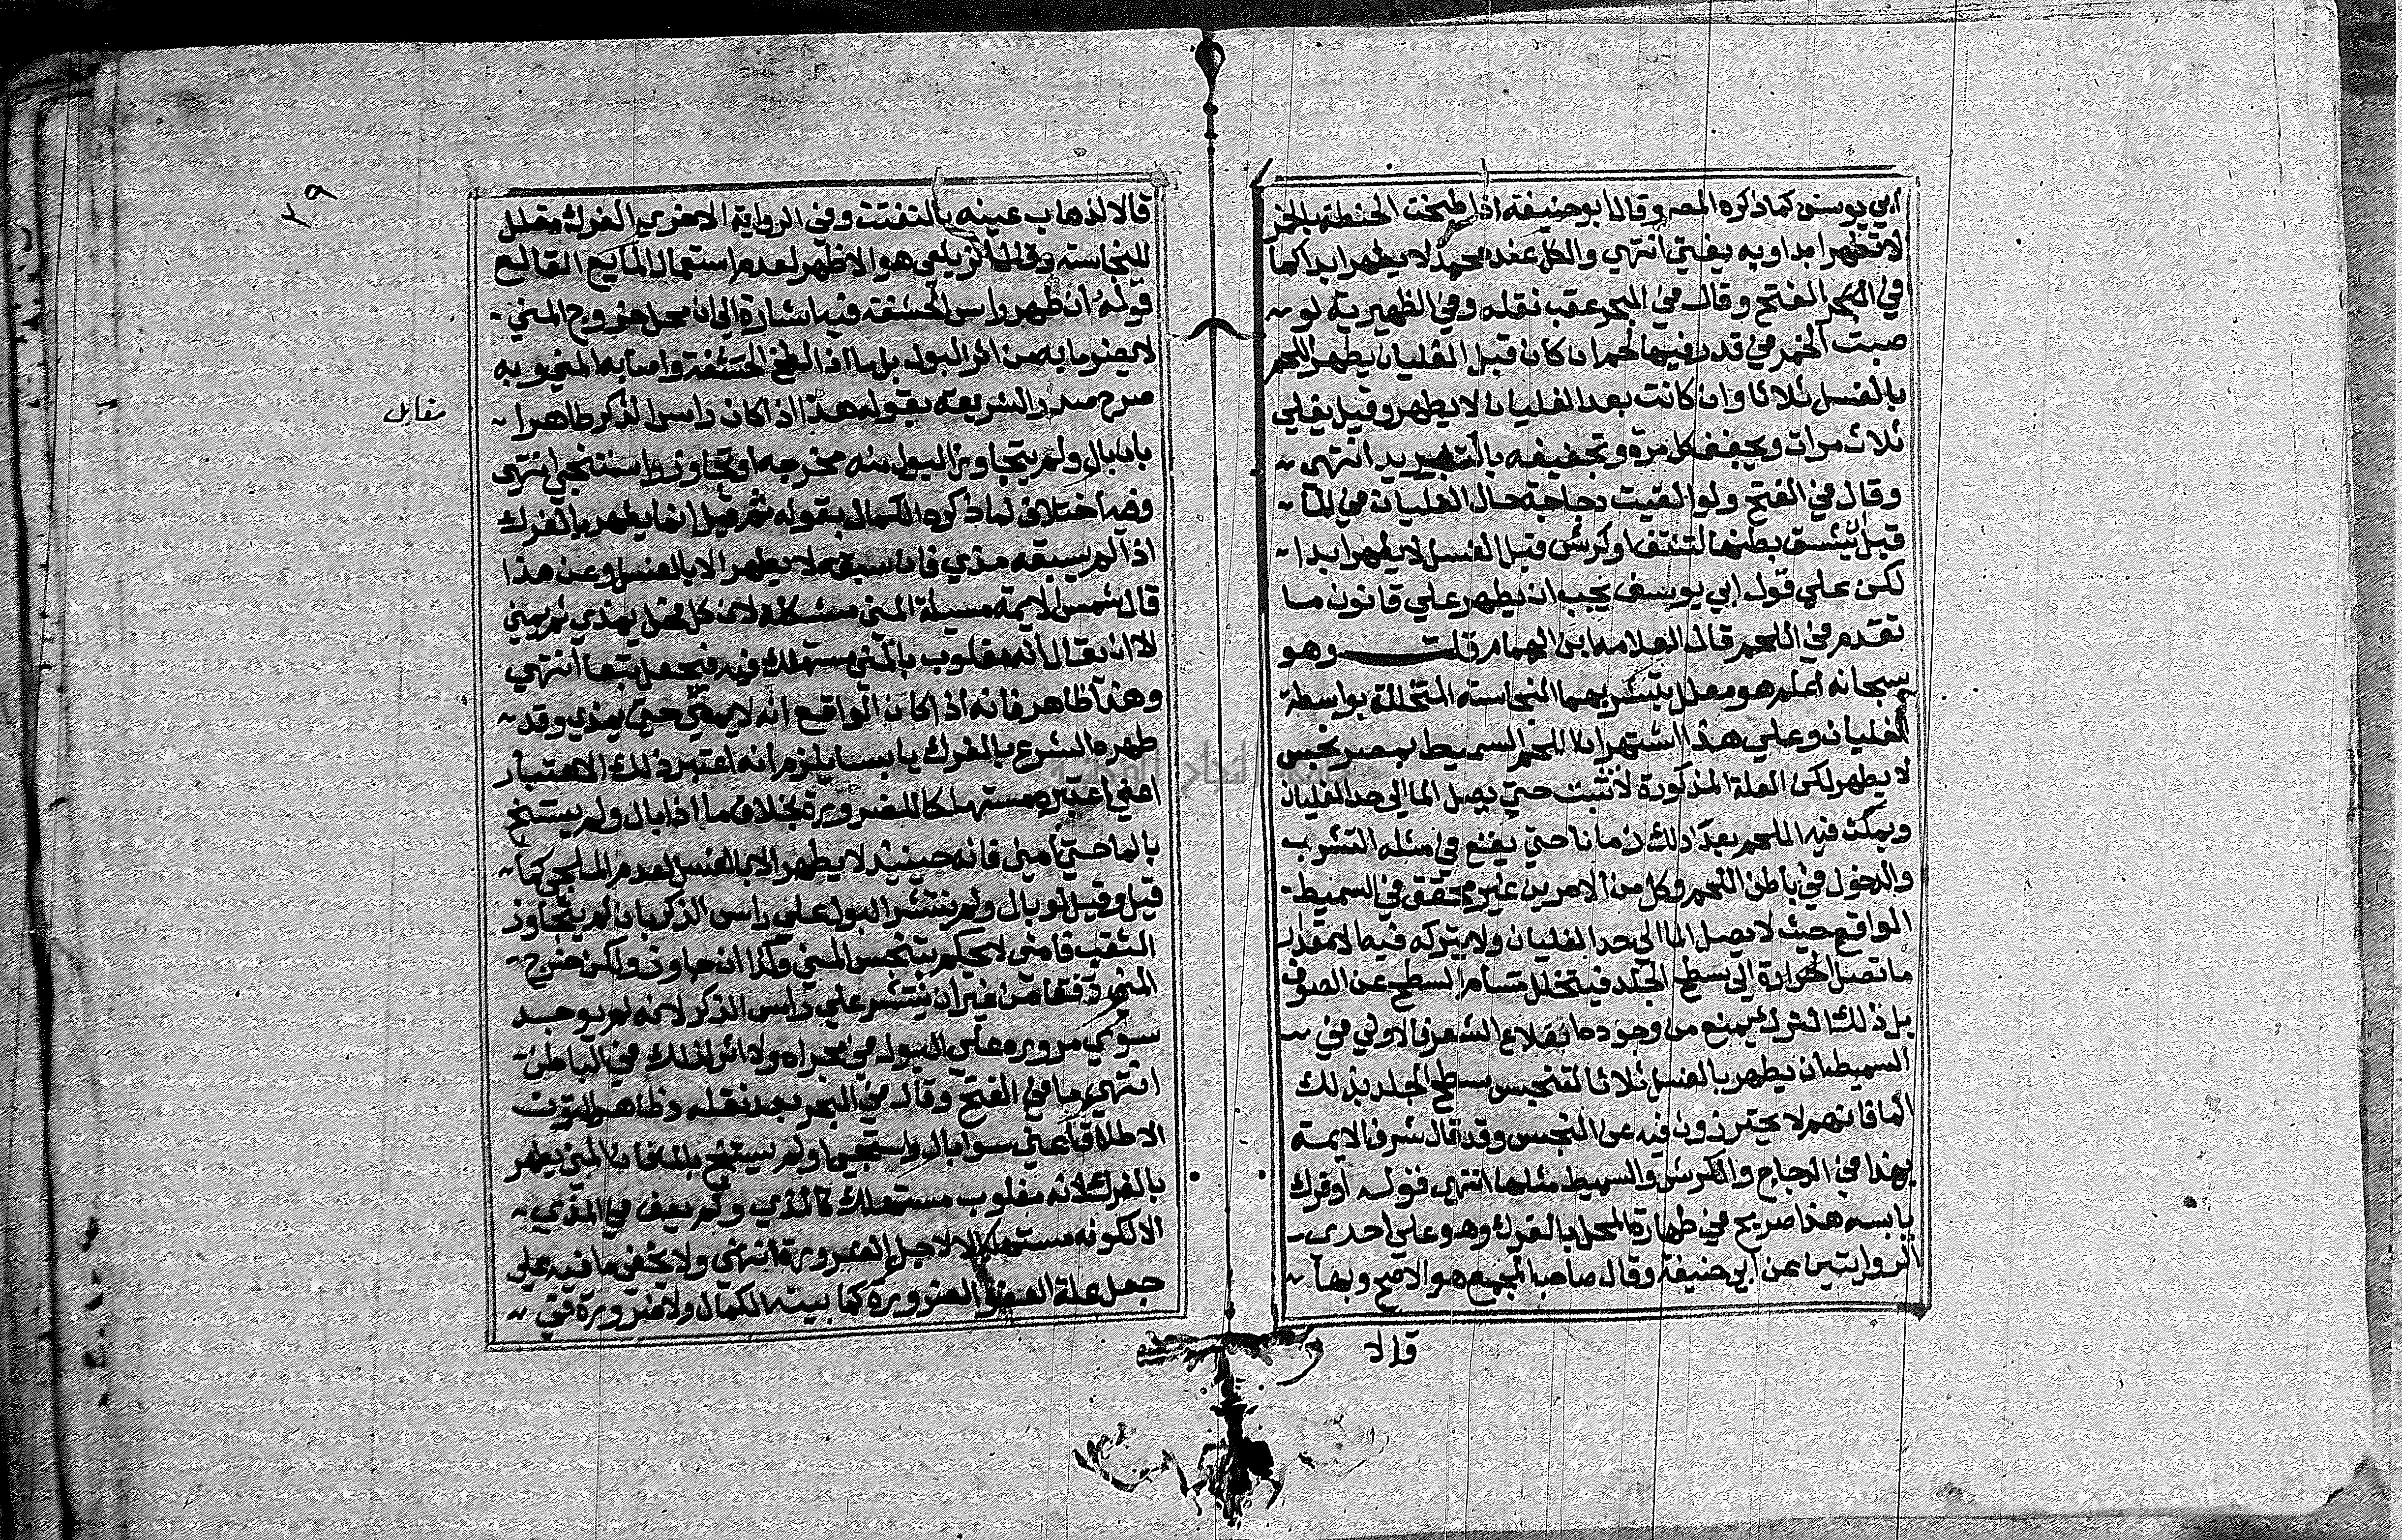 ابي يوسف كما ذكره المصر وقال ابو حنيفة اذا طبخت الحنطة بالخمر
لا تطهر ابدا وبه يفتي انتهي والكل عند محمد لا يطهر ابدا كما
في الفتح وقال في البحر عقب نقله وفي الظهيرية لو
صبت الخمر في قدر فيها لحم ان كان قبل الغليان يطهر اللحم
بالغسل ثلاثا وان كانت بعد الغليان لا يطهر وقيل يغلي
ثلاث مرات ويجفف كل مرة وتجفيفه بالتبريد انتهي
وقال في الفتح ولو القيت دجاجة حال الغليان في الما
قبل ان يشق بطنها لتنتف او كرش قبل الغسل لا يطهر ابدا
لكن علي قول ابي يوسف يجب ان يطهر علي قانون ما
تقدم في اللحم قال العلامة ابن الهمام قلت وهو
سبحانه اعلم هو معلل بتشربهما النجاسة المتخللة بواسطة
الغليان وعلي هذا اشتهر ان اللحم السميط بمصر نجس
لا يطهر لكن العلة المذكورة لا تثبت حتي يصل الما الي حد الغليان
ويمكث فيه اللحم بعد ذلك زمانا حتي يقع في مثله التشرب
والدخول في باطن اللحم وكل من الامرين غير محقق في السميط
الواقع حيث لا يصل الما الي حد الغليان ولا يترك فيه الا مقدار
ما تصل الحرارة الي سطح الجلد فيتخلل مسام السطح عن الصوف
بل ذلك الترك يمنع من وجوده انقلاع الشعر فالاولي في
السميط ان يطهر بالغسل ثلاثا لتنجس سطح الجلد بذلك
الما فانهم لا يحترزون فيه عن النجس وقد قال شرف الايمة
بهذا في الدجاج والكرش والسميط مثلها انتهي قوله او فرك
يابسه هذا صريح في طهارة المحل بالفرك وهو علي احدي
الروايتين عن ابي حنيفة وقال صاحب المجمع هو الاصح وبها
قالا
٣٩
قالا لذهاب عينه بالتفتت وفي الرواية الاخري الفرك مقلل
للنجاسة وقال الزيلعي هو الاظهر لعدم استعمال المايع القالع
قوله ان طهر راس الحشفة فيه اشارة الي ان محل خروج المني
لا يضر ما به من اثر البول بل ما اذا لطخ الحشفة واصابه المني وبه
صرح صدر الشريعة بقوله هذا اذا كان راس الذكر طاهرا
مقابل
بان بال ولم يتجاوز البول منه مخرجه او تجاوز واستنجي انتهي
وفيه اختلاف لما ذكره الكمال بقوله ثم قيل انما يطهر بالفرك
اذا لم يسبقه مذي فان سبقه لا يطهر الا بالغسل وعن هذا
قال شمس الايمة مسيلة المني مشكلة لان كل فحل يمذي ثم يمني
لا ان يقال انه مغلوب بالمني مستهلك فيه فيجعل تبعا انتهي
وهذا ظاهر فانه اذا كان الواقع انه لا يمني حتي يمذي وقد
طهره الشرع بالفرك يابسا يلزم انه اعتبر ذلك الاعتبار
اعني اعتبره مستهلكا للضرورة بخلاف ما اذا بال ولم يستنج
بالما حتي امني فانه حينيذ لا يطهر الا بالغسل لعدم الملجي كما
قيل وقيل لو بال ولم ينتشر البول علي راس الذكر بان لم يتجاوز
الثقب فامني لا يحكم بتنجس المني وكذا ان جاوز ولكن خرج
المني دفقا من غير ان ينتشر علي راس الذكر لانه لم يوجد
سوي مروره علي البول في مجراه ولا اثر لذلك في الباطن
انتهي ما في الفتح وقال في البحر بعد نقله وظاهر المتون
الاطلاق اعني سوا بال واستنجي او لم يستنج بالما فان المني يطهر
بالفرك لانه مغلوب مستهلك كالمذي ولم يعف في المذي
الا لكونه مستهلكا لا لاجل الضرورة انتهي ولا يخفي ما فيه علي
جعل علة العفو الضرورة كما بينه الكمال ولا ضرورة في